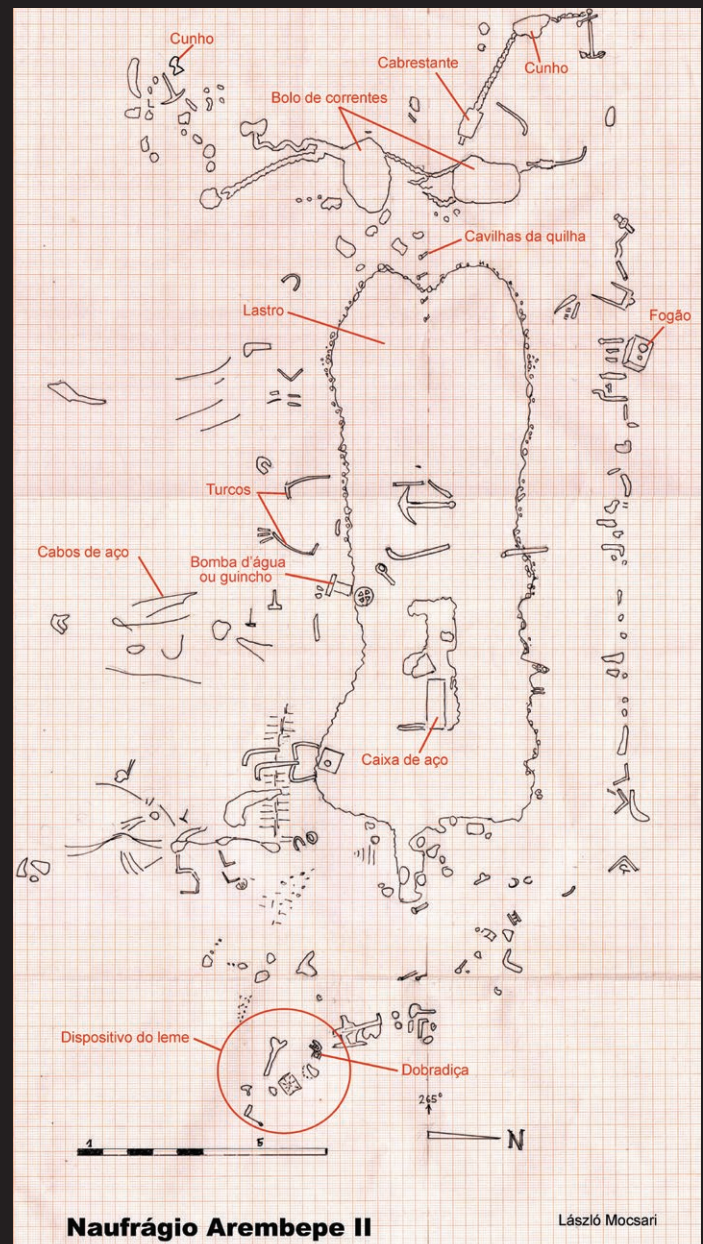 Cunho
Cabrestante
Cunho
Bolo de correntes
Cavilhas da quilha
Lastro
Fogão
Turcos
Cabos de aço
Bomba d'água
ou guincho
Caixa de aço
Dispositivo do leme
Dobradiça
265°
1
5
N
Naufrágio Arembepe II
László Mocsari